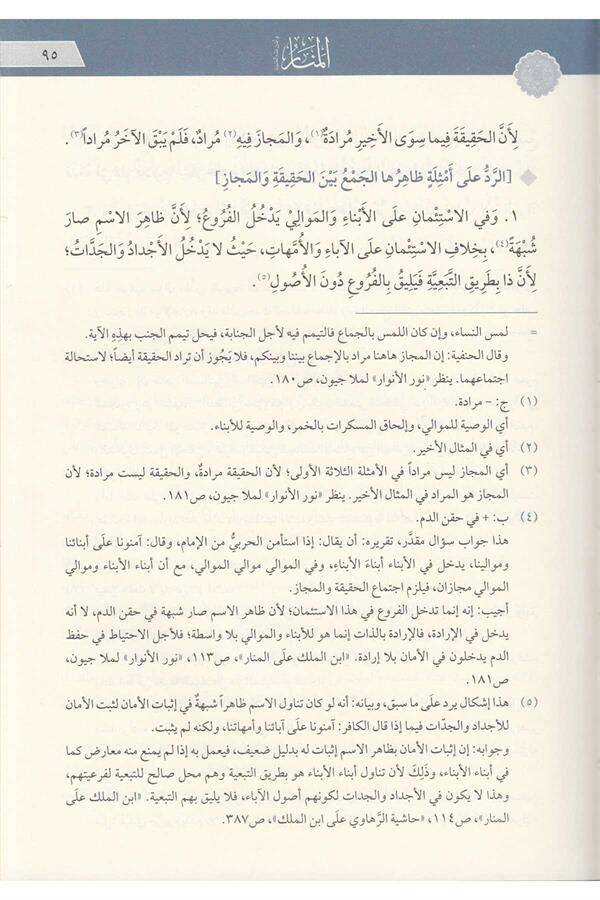 ٩٥
المنار
لِأَنَّ الحَقِيقَةَ فِيما سِوَى الأَخِيرِ مُرادَةٌ(١)، وَالمَجازَ فِيهِ(٢) مُرادٌ، فَلَمْ يَبْقَ الآخَرُ مُراداً(٣).
[الرَّدُّ عَلَى أَمْثِلَةٍ ظاهِرُها الجَمْعُ بَيْنَ الحَقِيقَةِ وَالمَجازِ]
١. وَفي الاسْتِئْمانِ عَلَى الأَبْناءِ وَالمَوالِيْ يَدْخُلُ الفُرُوعُ؛ لِأَنَّ ظاهِرَ الاسْمِ صارَ
شُبْهَةً(٤)، بِخِلافِ الاسْتِئْمانِ عَلَى الآباءِ وَالأُمَّهاتِ، حَيْثُ لا يَدْخُلُ الأَجْدادُ وَالجَدَّاتُ؛
لِأَنَّ ذا بِطَرِيقِ التَّبَعِيَّةِ فَيَلِيقُ بِالفُرُوعِ دُونَ الأُصُولِ(٥).
= لمس النساء، وإن كان اللمس بالجماع فالتيمم فيه لأجل الجنابة، فيحل تيمم الجنب بهذِهِ الآية.
وقال الحنفية: إن المجاز هاهنا مراد بالإجماع بيننا وبينكم، فلا يَجُوزَ أن تراد الحقيقة أيضاً؛ لاستحالة
اجتماعهما. ينظر «نور الأنوار» لملا جيون، ص١٨٠.
(١) ج: – مرادة.
أي الوصية للموالي، وإلحاق المسكرات بالخمر، والوصية للأبناء.
(٢) أي في المثال الأخير.
(٣) أي المجاز ليس مراداً في الأمثلة الثلاثة الأولى؛ لأن الحقيقة مرادةٌ، والحقيقة ليست مرادة؛ لأن
المجاز هو المراد في المثال الأخير. ينظر «نور الأنوار» لملا جيون، ص١٨١.
(٤) ب: + في حقن الدم.
هذا جواب سؤال مقدَّر، تقريره: أن يقال: إذا استأمن الحربيُّ من الإمام، وقال: آمنونا علَى أبنائنا
وموالينا، يدخل في الأبناء أبناءُ الأبناءِ، وفي الموالي موالي الموالي، مع أن أبناء الأبناء وموالي
الموالي مجازان، فيلزم اجتماع الحقيقة والمجاز.
أجيب: إنه إنما تدخل الفروع في هذا الاستئمان؛ لأن ظاهر الاسم صار شبهة في حقن الدم، لا أنه
يدخل في الإرادة، فالإرادة بالذات إنما هو للأبناء والموالي بلا واسطة؛ فلأجل الاحتياط في حفظ
الدم يدخلون في الأمان بلا إرادة. «ابن الملك علَى المنار»، ص١١٣، «نور الأنوار» لملا جيون،
ص١٨١.
(٥) هذا إشكال يرد علَى ما سبق، وبيانه: أنه لو كان تناول الاسم ظاهراً شبهةً في إثبات الأمان لثبت الأمان
للأجداد والجدّات فيما إذا قال الكافر: آمنونا علَى آبائنا وأمهاتنا، ولكنه لم يثبت.
وجوابه: إن إثبات الأمان بظاهر الاسم إثبات له بدليل ضعيف، فيعمل به إذا لم يمنع منه معارض كما
في أبناء الأبناء، وذَلِكَ لأن تناول أبناء الأبناء هو بطريق التبعية وهم محل صالح للتبعية لفرعيتهم،
وهذا لا يكون في الأجداد والجدات لكونهم أصول الآباء، فلا يليق بهم التبعية. «ابن الملك علَى
المنار»، ص١١٤، «حاشية الرَّهاوي علَى ابن الملك»، ص٣٨٧.